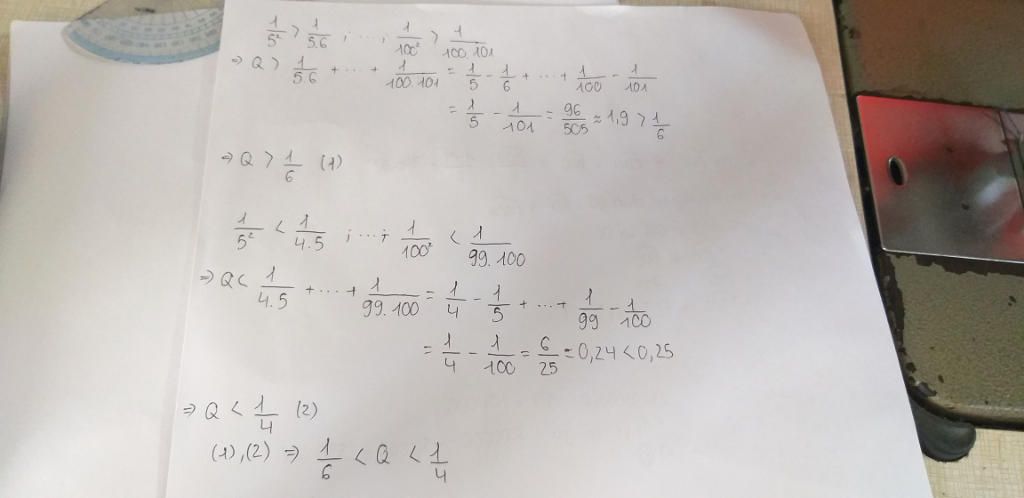 1/5² > 1/5.6 ; ...; 1/100² > 1/100.101
⇒ Q > 1/5.6 + ... + 1/100.101 = 1/5 - 1/6 + ... + 1/100 - 1/101
= 1/5 - 1/101 = 96/505 ≈ 1,9 > 1/6
⇒ Q > 1/6 (1)
1/5² < 1/4.5 ; ...; 1/100² < 1/99.100
⇒ Q < 1/4.5 + ... + 1/99.100 = 1/4 - 1/5 + ... + 1/99 - 1/100
= 1/4 - 1/100 = 6/25 = 0,24 < 0,25
⇒ Q < 1/4 (2)
(1),(2) ⇒ 1/6 < Q < 1/4